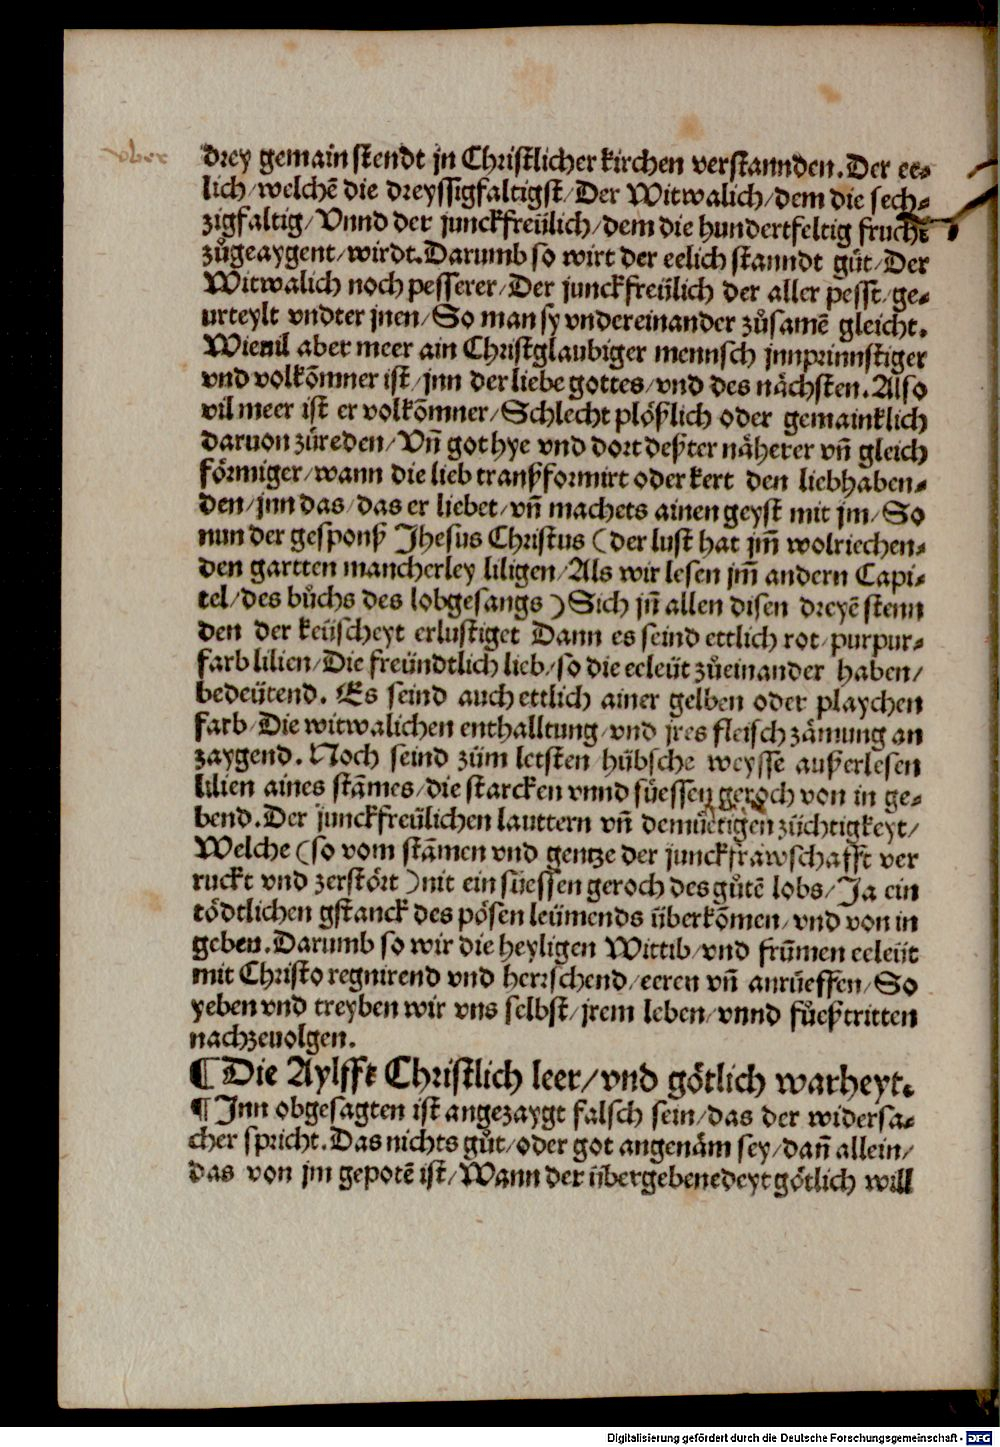 vber
drey gemain stendt jn Christlicher kirchen verstannden. Der ee⸗
lich/welchē die dreyssigfaltigst/Der Witwalich/dem die sech⸗
zigfaltig/Vnnd der junckfreülich/dem die hundertfeltig frucht
zůgeaygent/wirdt. Darumb so wirt der eelich stanndt gůt/Der
Witwalich noch pesserer/Der junckfreülich der aller pesst/ge⸗
urteylt vndter jnen/So man sy vndereinander zůsamē gleicht.
Wieuil aber meer ain Christglaubiger mennsch jnnprinnstiger
vnd volkōmner ist/jnn der liebe gottes/vnd des nächsten. Also
vil meer ist er volkōmner/Schlecht plößlich oder gemainklich
daruon zůreden/Vn̄ got hye vnd dort deßter näherer vn̄ gleich
förmiger/wann die lieb tranßformirt oder kert den liebhaben⸗
den/jnn das/das er liebet/vn̄ machets ainen geyst mit jm/So
nun der gesponß Jhesus Christus (der lust hat jm̄ wolriechen⸗
den gartten mancherley liligen/Als wir lesen jm̄ andern Capi⸗
tel/des bůchs des lobgesangs) Sich jn̄ allen disen dreyē stenn
den der keüscheyt erlustiget Dann es seind ettlich rot/purpur⸗
farb lilien/Die freündtlich lieb/so die eeleüt zůeinander haben/
bedeütend. Es seind auch ettlich ainer gelben oder playchen
farb/Die witwalichen enthalltung/vnd jres fleisch zämung an
zaygend. Noch seind zům letsten/hübsche weysse außerlesen
lilien aines stāmes/die starcken vnnd süessen geroch von in ge⸗
bend. Der junckfreülichen lauttern vn̄ demüetigen züchtigkeyt/
Welche (so vom stāmen vnd gentze der junckfrawschafft ver
ruckt vnd zerstört) nit ein süessen geroch des gůtē lobs/Ja ein
tödtlichen gstanck des pösen leümends überkōmen/vnd von in
geben. Darumb so wir die heyligen Wittib/vnd frūmen eeleüt
mit Christo regnirend vnd herrschend/eeren vn̄ anrüeffen/So
yeben vnd treyben wir vns selbst/jrem leben/vnnd fůeßtritten
nachzeuolgen.
¶ Die Aylfft Christlich leer/vnd götlich warheyt.
¶ Jnn obgesagten ist angezaygt falsch sein/das der widersa⸗
cher spricht. Das nichts gůt/oder got angenäm sey/dan̄ allein/
das von jm gepotē ist/Wann der übergebenedeyt götlich will
Digitalisierung gefördert durch die Deutsche Forschungsgemeinschaft - DFG